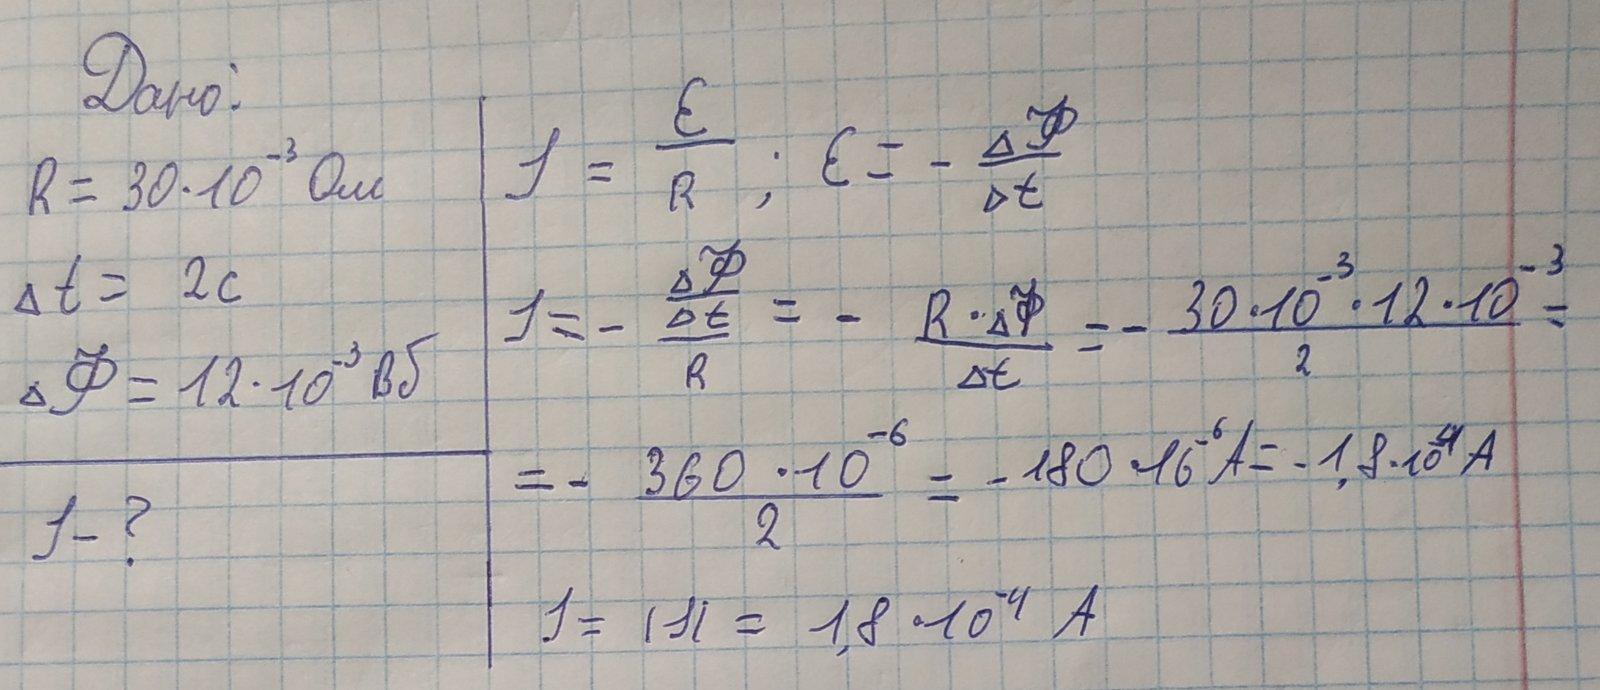 Дано:
R = 30·10⁻³ Ом
Δt = 2с
ΔΦ = 12·10⁻³ Вб
I - ?
I = ε/R ; ε = - ΔΦ/Δt
I = - (ΔΦ/Δt)/R = - (R·ΔΦ)/Δt = - (30·10⁻³·12·10⁻³)/2 =
= - (360·10⁻⁶)/2 = -180·10⁻⁶ А = -1,8·10⁻⁴ А
I = |I| = 1,8·10⁻⁴ А